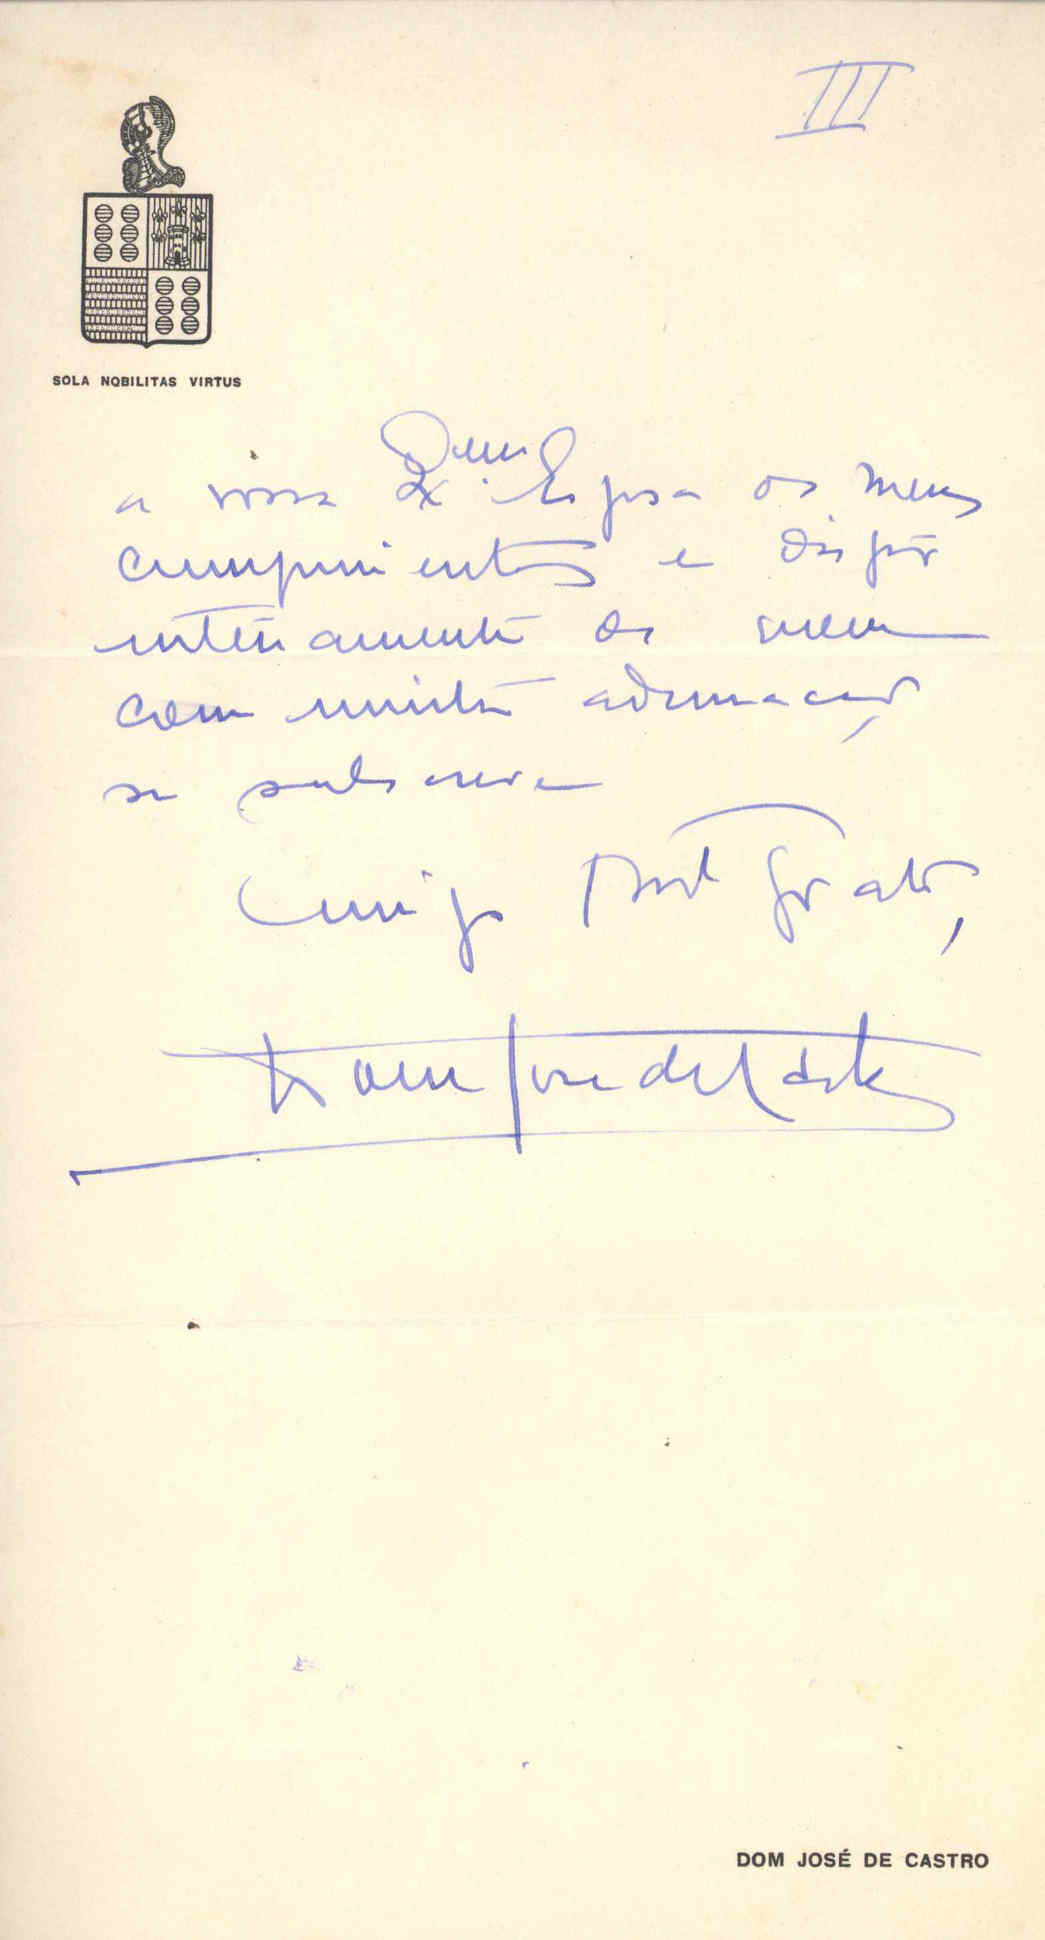 III
SOLA NOBILITAS VIRTUS
a vossa Exma. Esposa os meus
cumprimentos e dispôr
inteiramente do quem
com muita admiração,
se subscreve
Amigo Mt Grato,
Dom José de Castro
DOM JOSÉ DE CASTRO